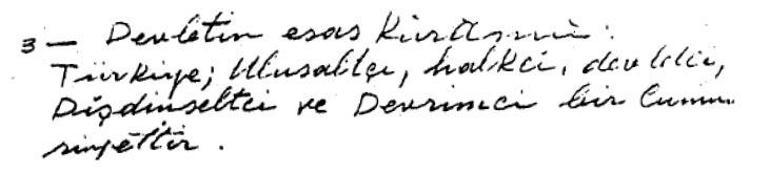 3 — Devletin esas Kuruluşu:
Türkiye; Ulusalcı, halkcı, devletci,
Dışdinselci ve Devrimci bir Cumu-
riyettir.